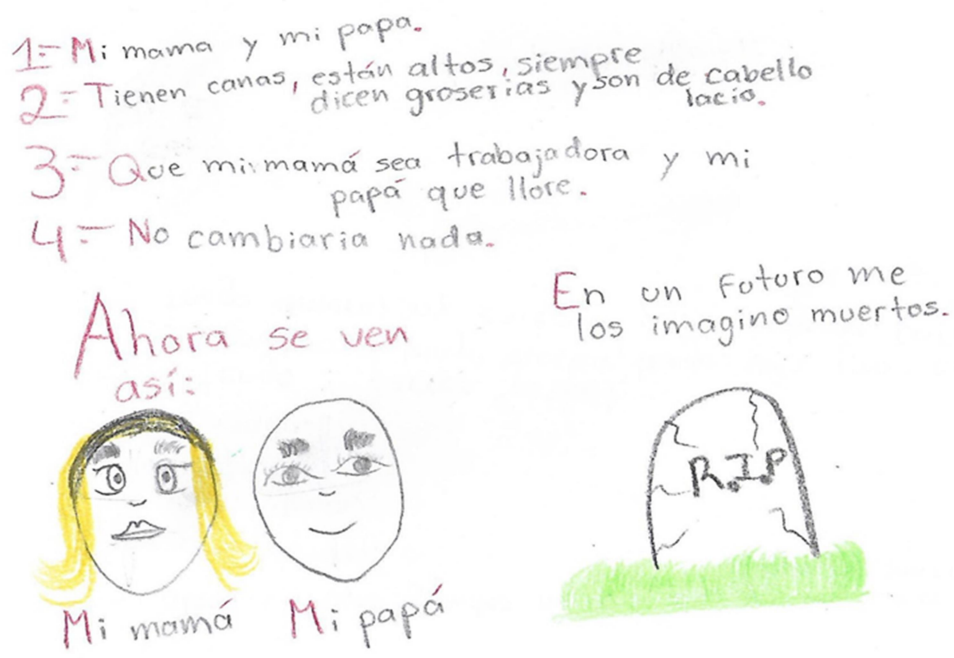 1=Mi mama y mi papa.
2=Tienen canas, están altos, siempre
dicen groserias y son de cabello
lacio.
3=Que mi mamá sea trabajadora y mi
papá que llore.
4=No cambiaria nada.
Ahora se ven
así:
Mi mamá Mi papá
En un futuro me
los imagino muertos.
R.I.P